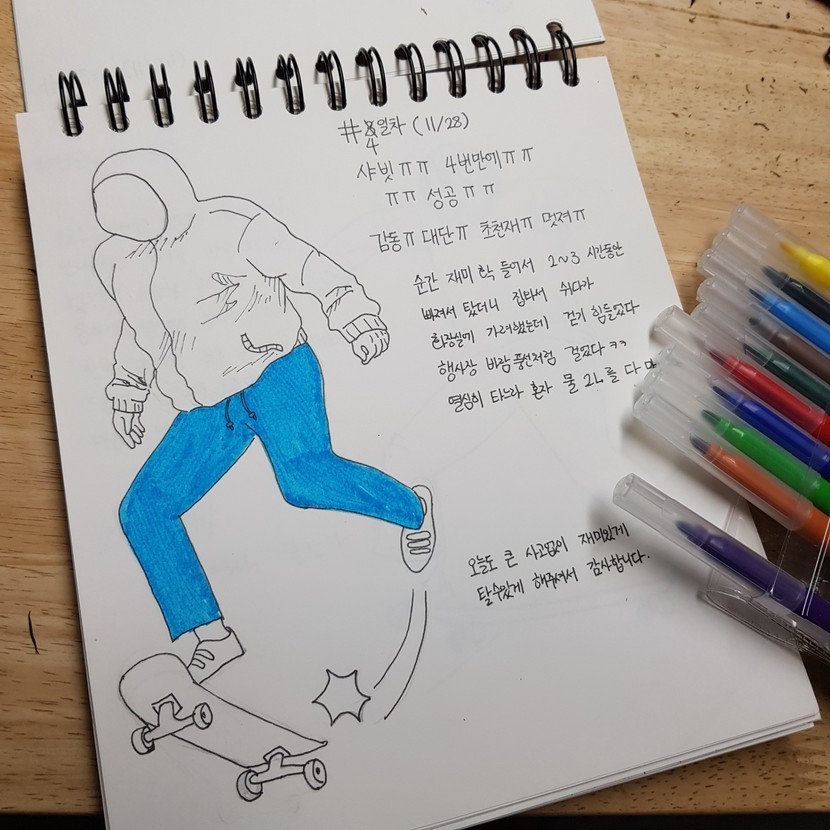 #4일차 (11/28)
샤빗ㅠㅠ 4번만에ㅠㅠ
ㅠㅠ 성공ㅠㅠ
감동ㅠ 대단ㅠ 초천재ㅠ 멋져ㅠ
순간 재미 확 들어서 2~3 시간동안
빠져서 탔더니 집와서 쉬다가
화장실에 가려했는데 걷기 힘들었다
행사장 바람풍선처럼 걸었다 ㅋㅋ
열심히 타느라 혼자 물 2L를 다
오늘도 큰 사고없이 재미있게
탈수있게 해주셔서 감사합니다.